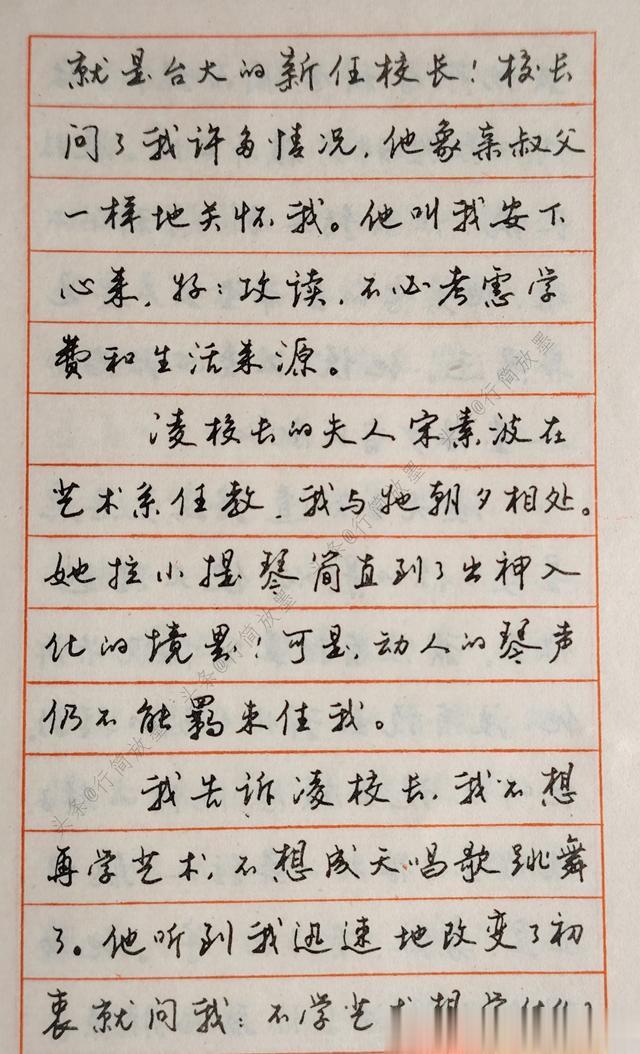 就是台大的新任校长！校长
问了我许多情况，他象亲叔父
一样地关怀我。他叫我安下
心来，好：攻读，不必考虑学
费和生活来源。
凌校长的夫人宋素波在
艺术系任教，我与她朝夕相处。
她拉小提琴简直到了出神入
化的境界！可是，动人的琴声
仍不能羁束住我。
我告诉凌校长，我不想
再学艺术，不想成天唱歌跳舞
了。他听到我迅速地改变了初
衷就问我：不学艺术想学
头条@行简放墨
头条@行简放墨
头条@行简放墨